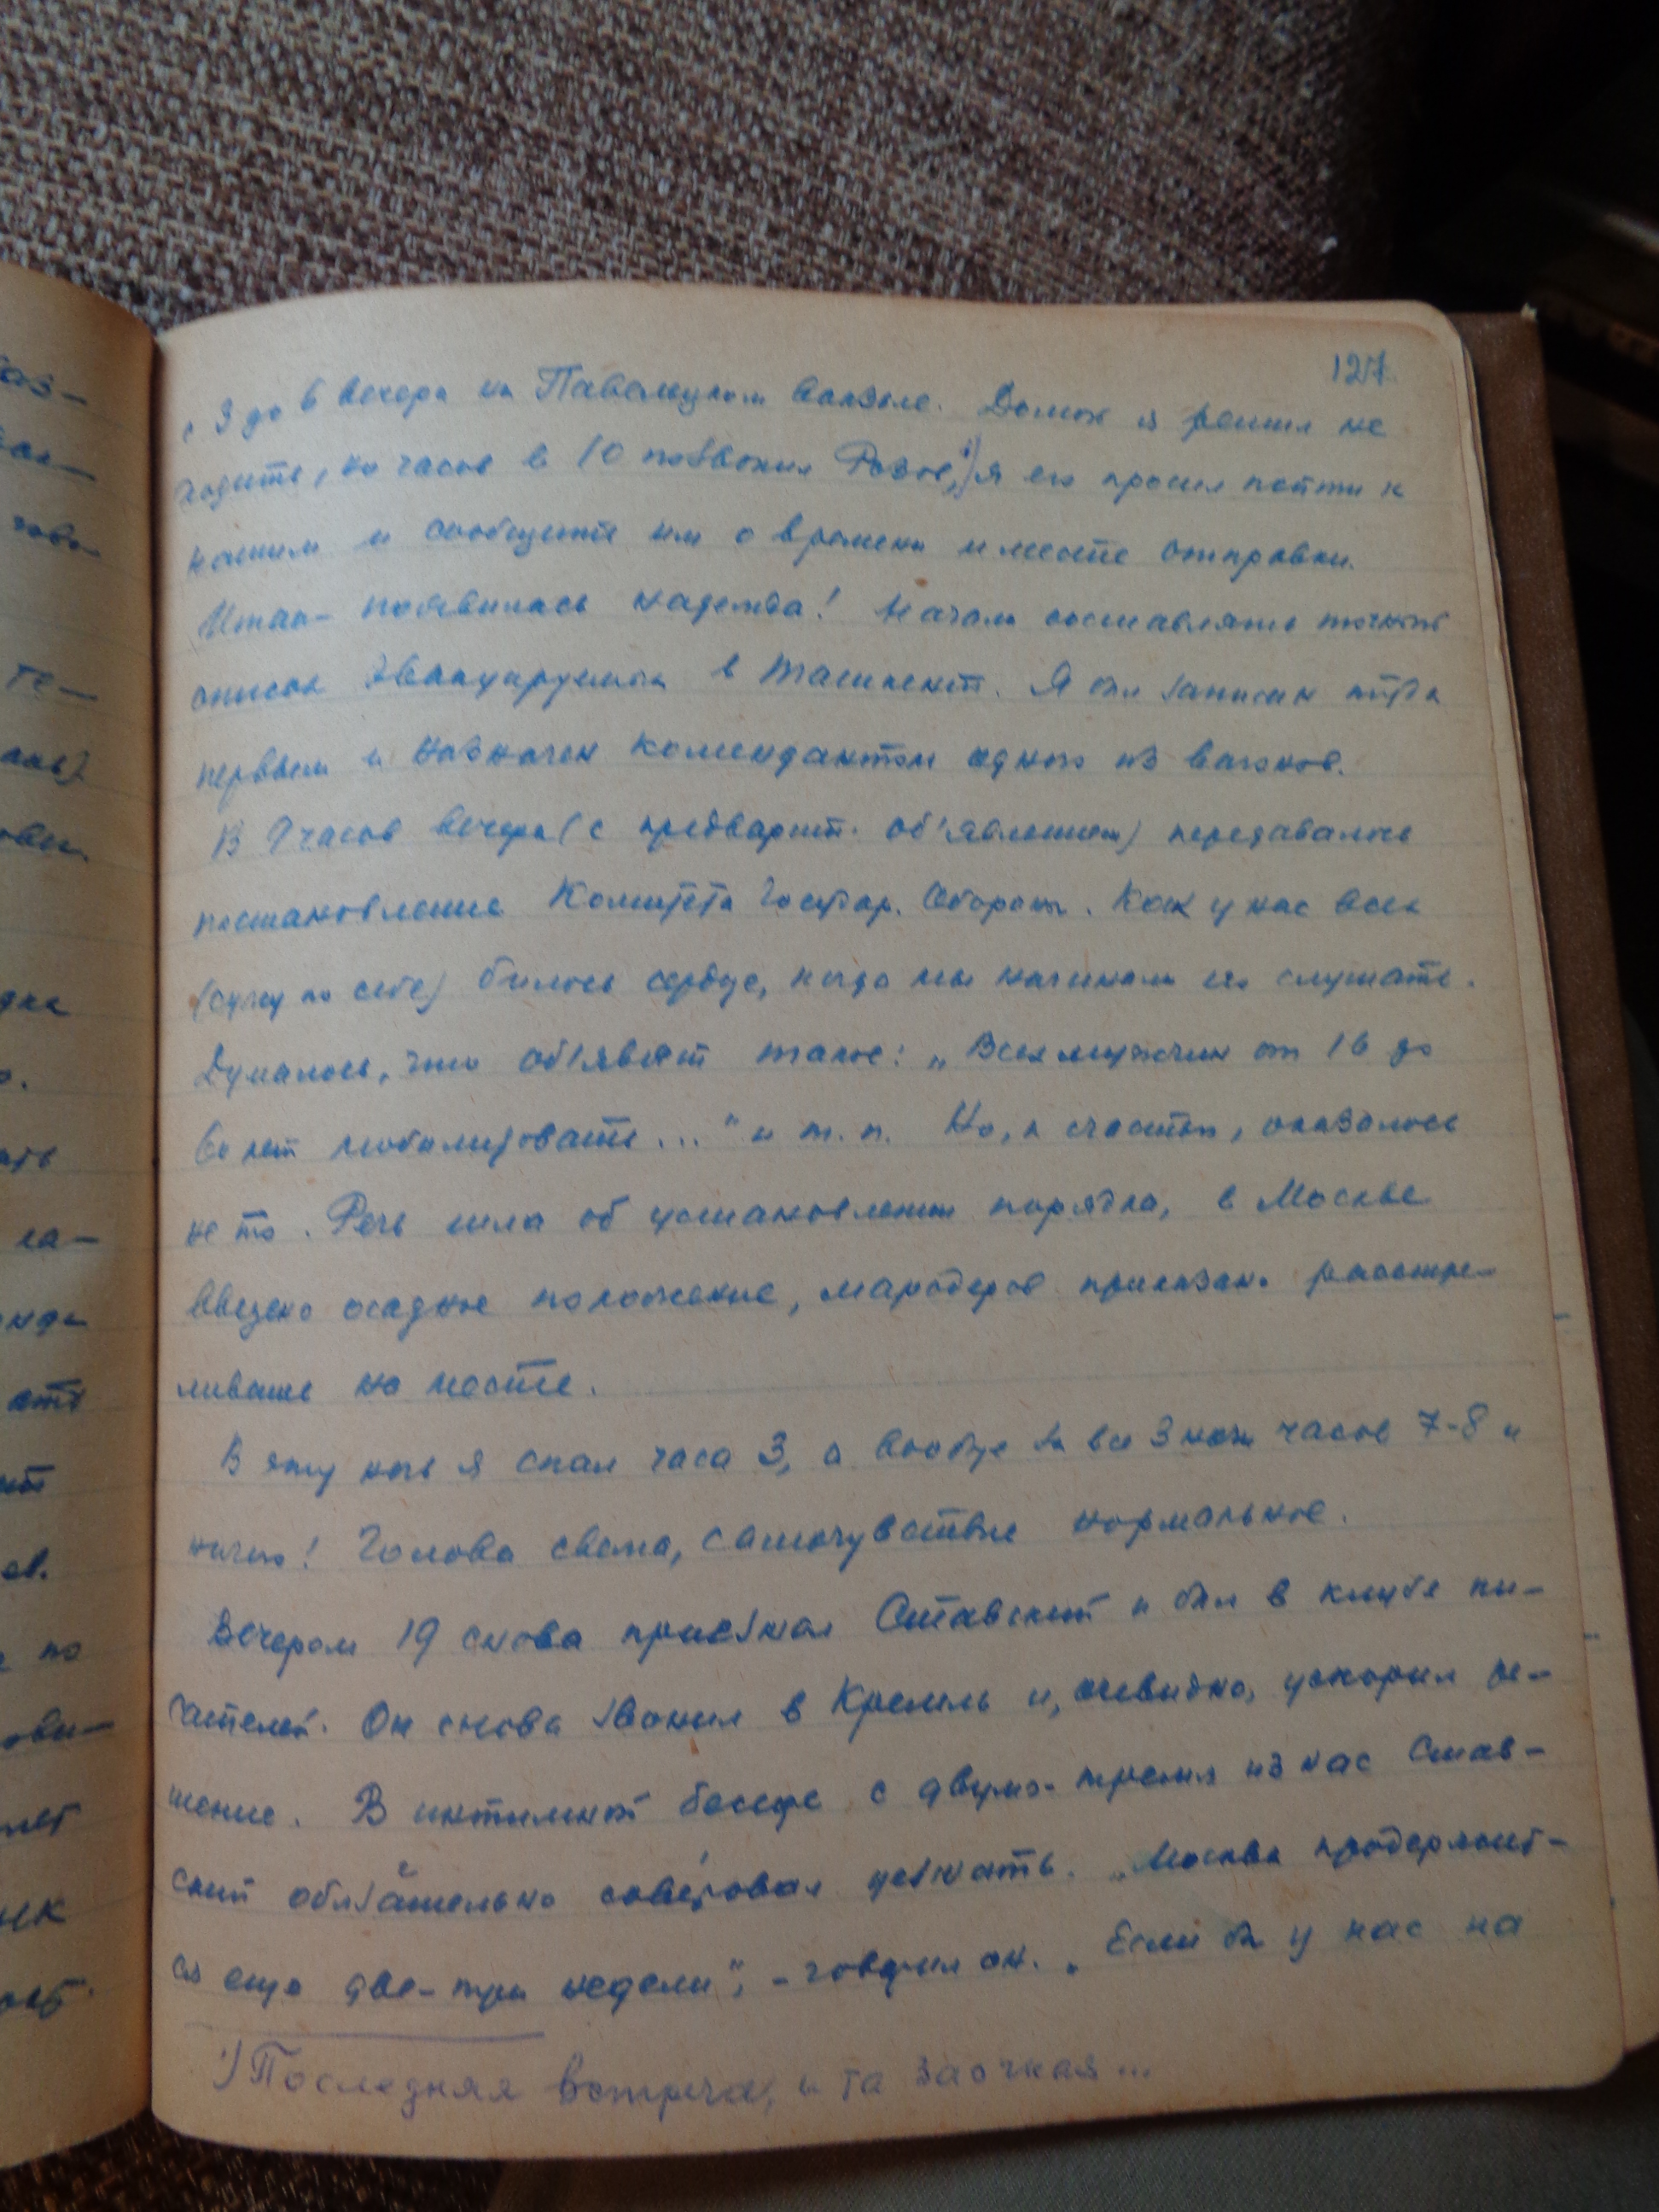 127
с 3 до 6 вечера на Павелецком вокзале. Домой я решил не
ходить, но часов в 10 позвонил Розов,¹) я его просил пойти к
нашим и сообщить им о времени и месте отправки.
Итак – появилась надежда! Начали составлять точный
список эвакуируемых в Ташкент. Я был записан чуть
первым и назначен комендантом одного из вагонов.
В 9 часов вечера (с предварит. об'явлением) передавалось
постановление Комитета Государ. Обороны. Как у нас всех
(сужу по себе) билось сердце, когда мы начинали его слушать.
Думалось, что об'явят такое: „Всех мужчин от 16 до
60 лет мобилизовать..." и т. п. Но, к счастью, оказалось
не то. Речь шла об установлении порядка, в Москве
введено осадное положение, мародеров приказано расстре-
ливать на месте.
В эту ночь я спал часа 3, а вообще за все 3 ночи часов 7-8 и
ничего! Голова свежа, самочувствие нормальное.
Вечером 19 снова приезжал Ставский и был в клубе пи-
сателей. Он снова звонил в Кремль и, очевидно, ускорил ре-
шение. В интимной беседе с двумя-тремя из нас Став-
ский обязательно советовал уезжать. „Москва продержит-
ся еще две-три недели", – говорил он. „Если бы у нас на
¹) Последняя встреча, и та заочная...
аз-
гово-
те-
дка
ать
га-
ев.
по